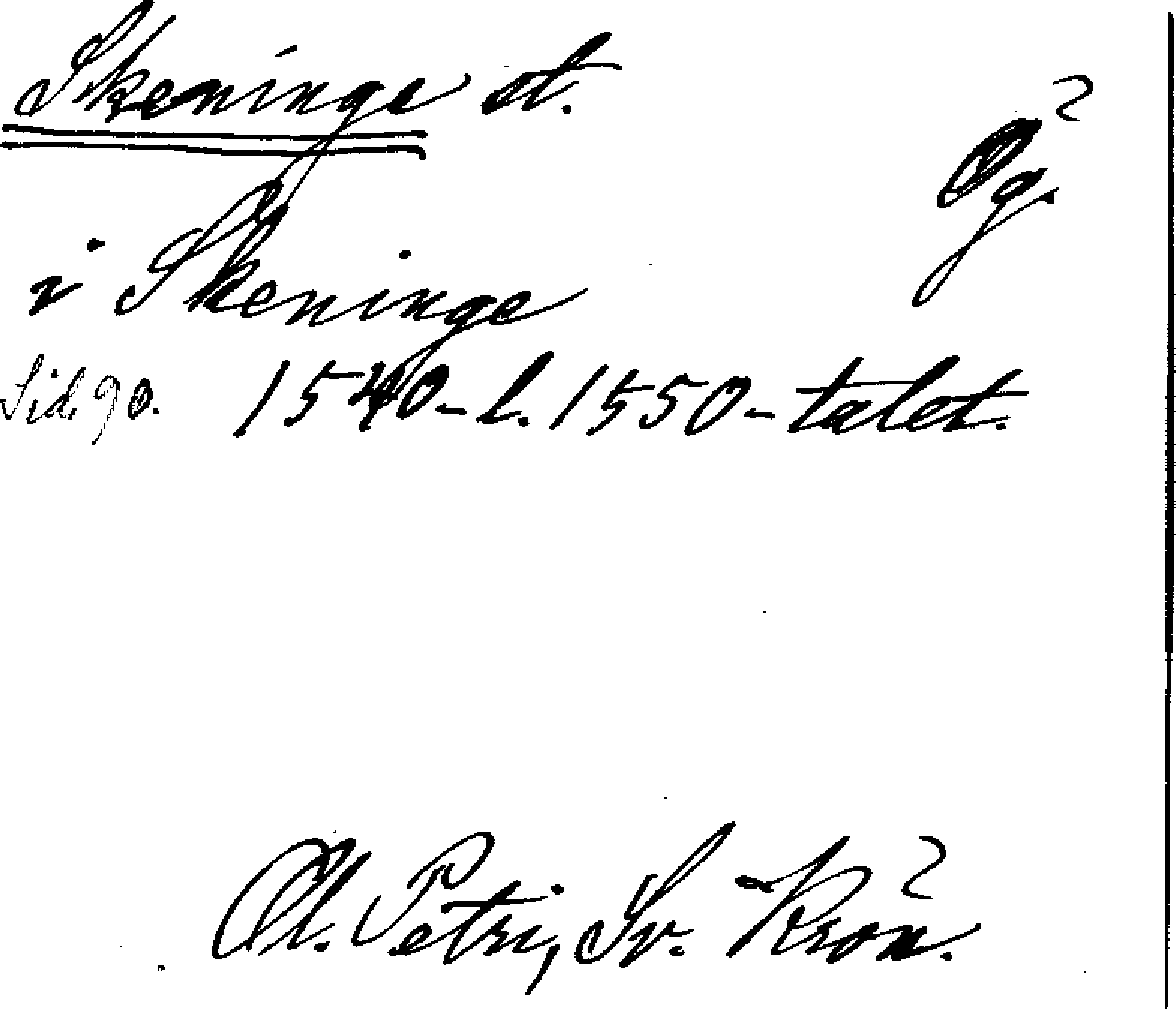 Skeninge st.
Ög.
i Skeninge
Sid. 90. 1540- l. 1550-talet.
Ol. Petri, Sv. Krön.